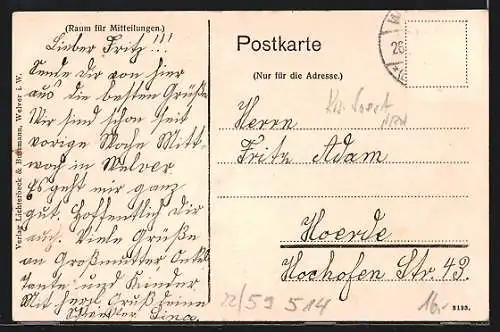 (Raum für Mitteilungen.)
Lieber Fritz!!!
Sende Dir von hier
aus die besten Grüße
Wir sind schon seit
vorige Woche Mitt-
woch in Welver
Es geht mir ganz
gut. Hoffentlich Dir
auch. Viele Grüße
an Großmutter Onkel
Tante und Kinder
Mit herzl. Gruß deine
Schwester Lina.
Verlag Lichterbeck & Husemann, Welver i. W.
Postkarte
(Nur für die Adresse.)
Kr. Soest
NRW
Herrn
Fritz Adam
Hoerde
Hochofen Str. 43.
22/59 514
16.-
3193.
26